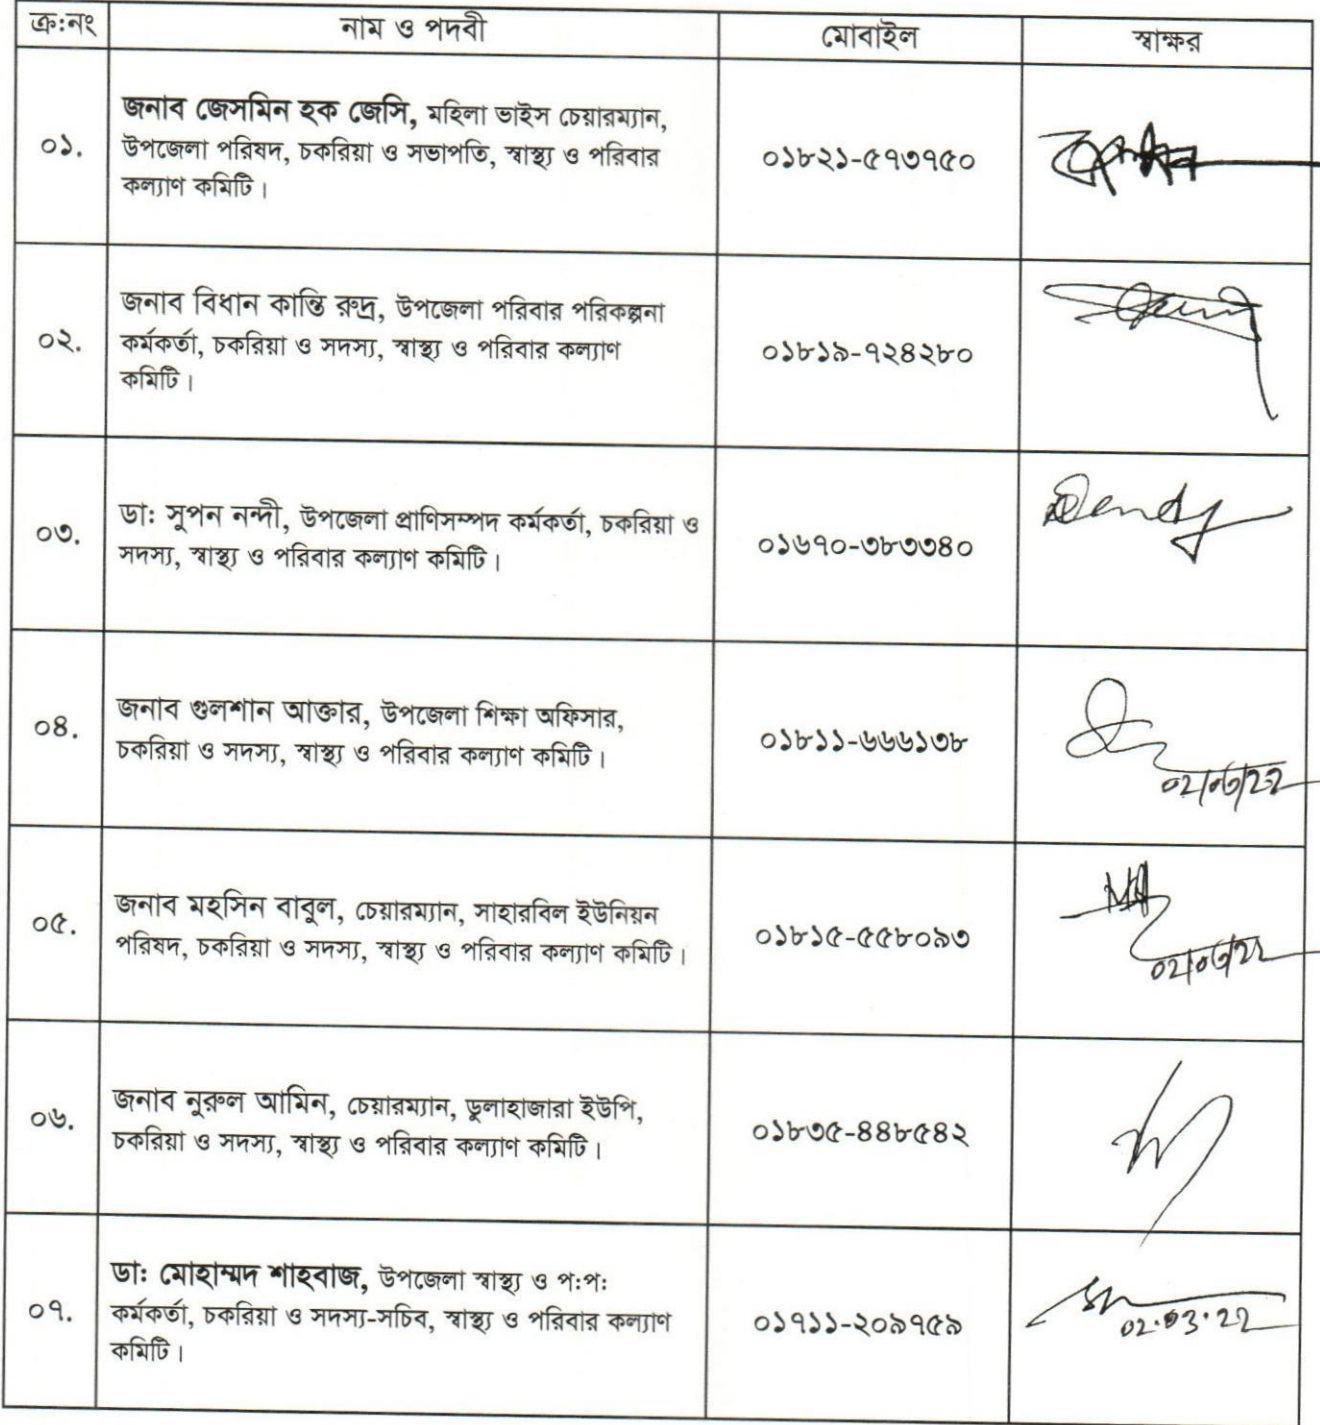 ক্র:নং নাম ও পদবী মোবাইল স্বাক্ষর
জনাব জেসমিন হক জেসি, মহিলা ভাইস চেয়ারম্যান,
০১. উপজেলা পরিষদ, চকরিয়া ও সভাপতি, স্বাস্থ্য ও পরিবার ০১৮২১-৫৭৩৭৫০
কল্যাণ কমিটি।
জনাব বিধান কান্তি রুদ্র, উপজেলা পরিবার পরিকল্পনা
০২. কর্মকর্তা, চকরিয়া ও সদস্য, স্বাস্থ্য ও পরিবার কল্যাণ ০১৮১৯-৭২৪২৮০
কমিটি।
ডা: সুপন নন্দী, উপজেলা প্রাণিসম্পদ কর্মকর্তা, চকরিয়া ও
০৩. সদস্য, স্বাস্থ্য ও পরিবার কল্যাণ কমিটি। ০১৬৭০-৩৮৩৩৪০
জনাব গুলশান আক্তার, উপজেলা শিক্ষা অফিসার,
০৪. চকরিয়া ও সদস্য, স্বাস্থ্য ও পরিবার কল্যাণ কমিটি। ০১৮১১-৬৬৬১৩৮
০২/০৩/২২
জনাব মহসিন বাবুল, চেয়ারম্যান, সাহারবিল ইউনিয়ন
০৫. পরিষদ, চকরিয়া ও সদস্য, স্বাস্থ্য ও পরিবার কল্যাণ কমিটি। ০১৮১৫-৫৫৮০৯৩
০২/০৩/২২
জনাব নুরুল আমিন, চেয়ারম্যান, ডুলাহাজারা ইউপি,
০৬. চকরিয়া ও সদস্য, স্বাস্থ্য ও পরিবার কল্যাণ কমিটি। ০১৮৩৫-৪৪৮৫৪২
ডা: মোহাম্মদ শাহবাজ, উপজেলা স্বাস্থ্য ও প:প:
০৭. কর্মকর্তা, চকরিয়া ও সদস্য-সচিব, স্বাস্থ্য ও পরিবার কল্যাণ ০১৭১১-২০৯৭৫৯
কমিটি।
02.03.22